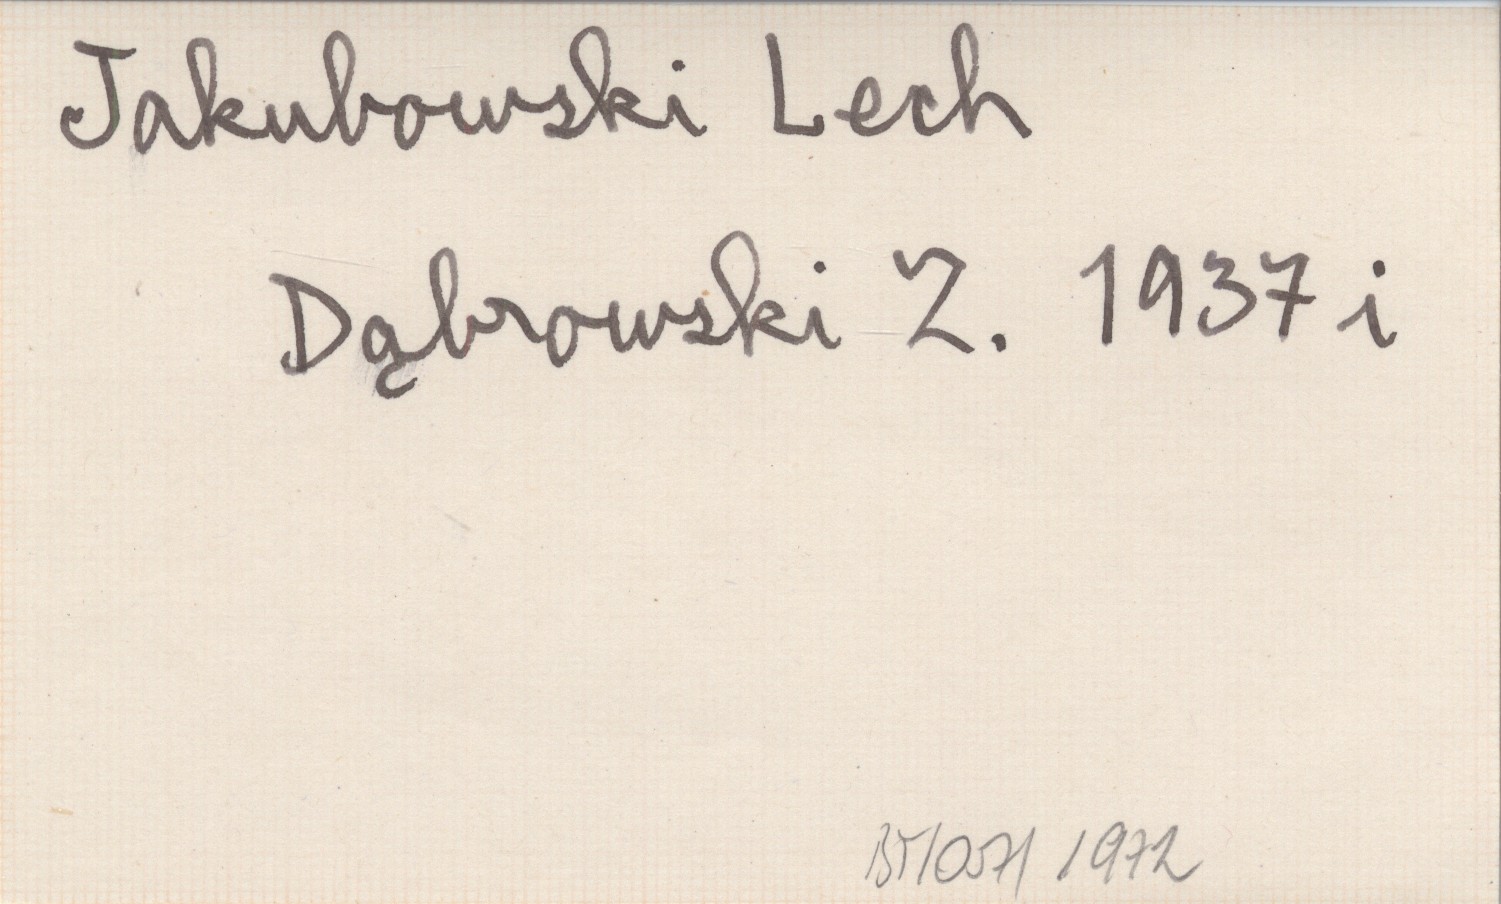 Jakubowski Lech
Dąbrowski Z. 1937 i
1972